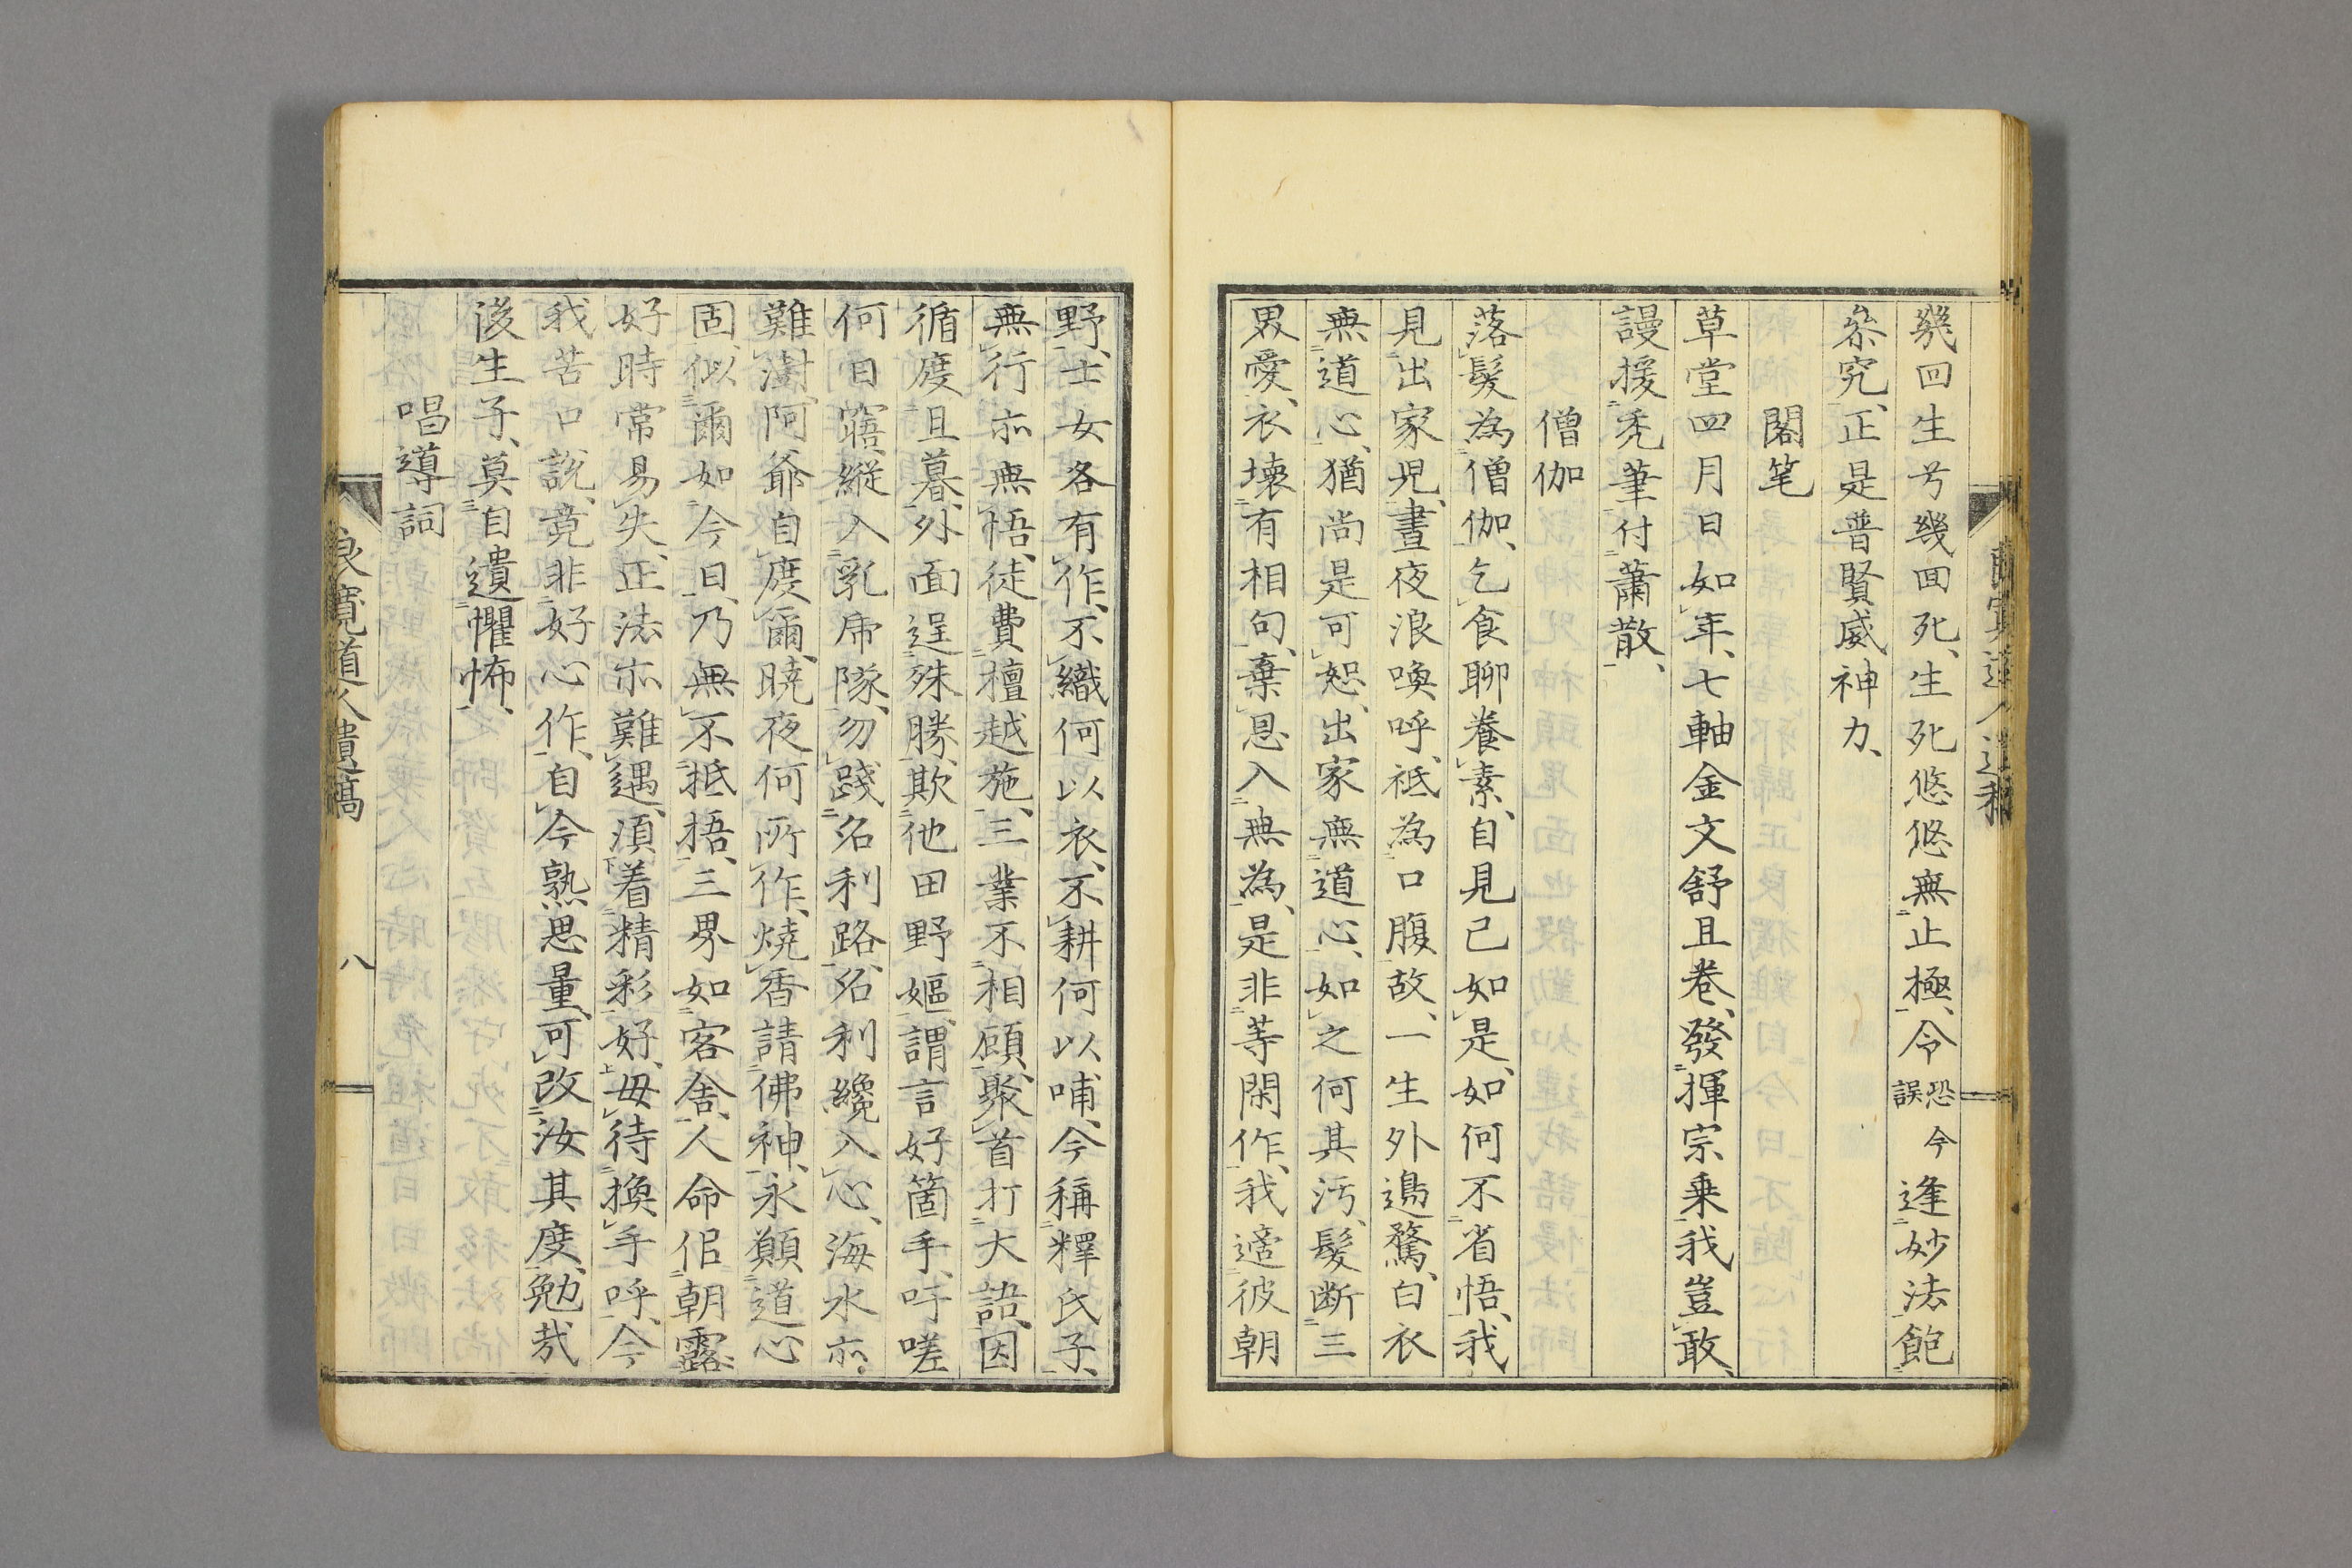 幾回生兮幾回死、生死悠悠無止極、今恐誤今逢妙法飽
参究、正是普賢威神力、
閣笔
草堂四月日如年、七軸金文舒且巻、發揮宗乗我豈敢、
謾援禿筆付蕭散、
僧伽
落髮為僧伽、乞食聊養素、自見已如是、如何不省悟、我
見出家児、晝夜浪喚呼、祗為口腹故、一生外邉騖、白衣
無道心、猶尚是可恕、出家無道心、如之何其汚、髮断三
界愛、衣壊有相句、棄恩入無為、是非等閑作、我適彼朝
野、士女各有作、不織何以衣、不耕何以哺、今稱釋氏子、
無行亦無悟、徒費檀越施、三業不相顧、聚首打大語、因
循度旦暮、外面逞殊勝、欺他田野嫗、謂言好箇手、吁嗟
何日寤、縦入乳虎隊、勿踐名利路、名利纔入心、海水亦
難澍、阿爺自度爾、暁夜何所作、焼香請佛神、永願道心
固、似爾如今日、乃無不抵捂、三界如客舎、人命佀朝露
好時常易失、正法亦難遇、須着精彩好、毋待換手呼、今
我苦口説、竟非好心作、自今熟思量、可改汝其度、勉哉
後生子、莫自遺懼怖、
唱導詞
良寛道人遺稿
八